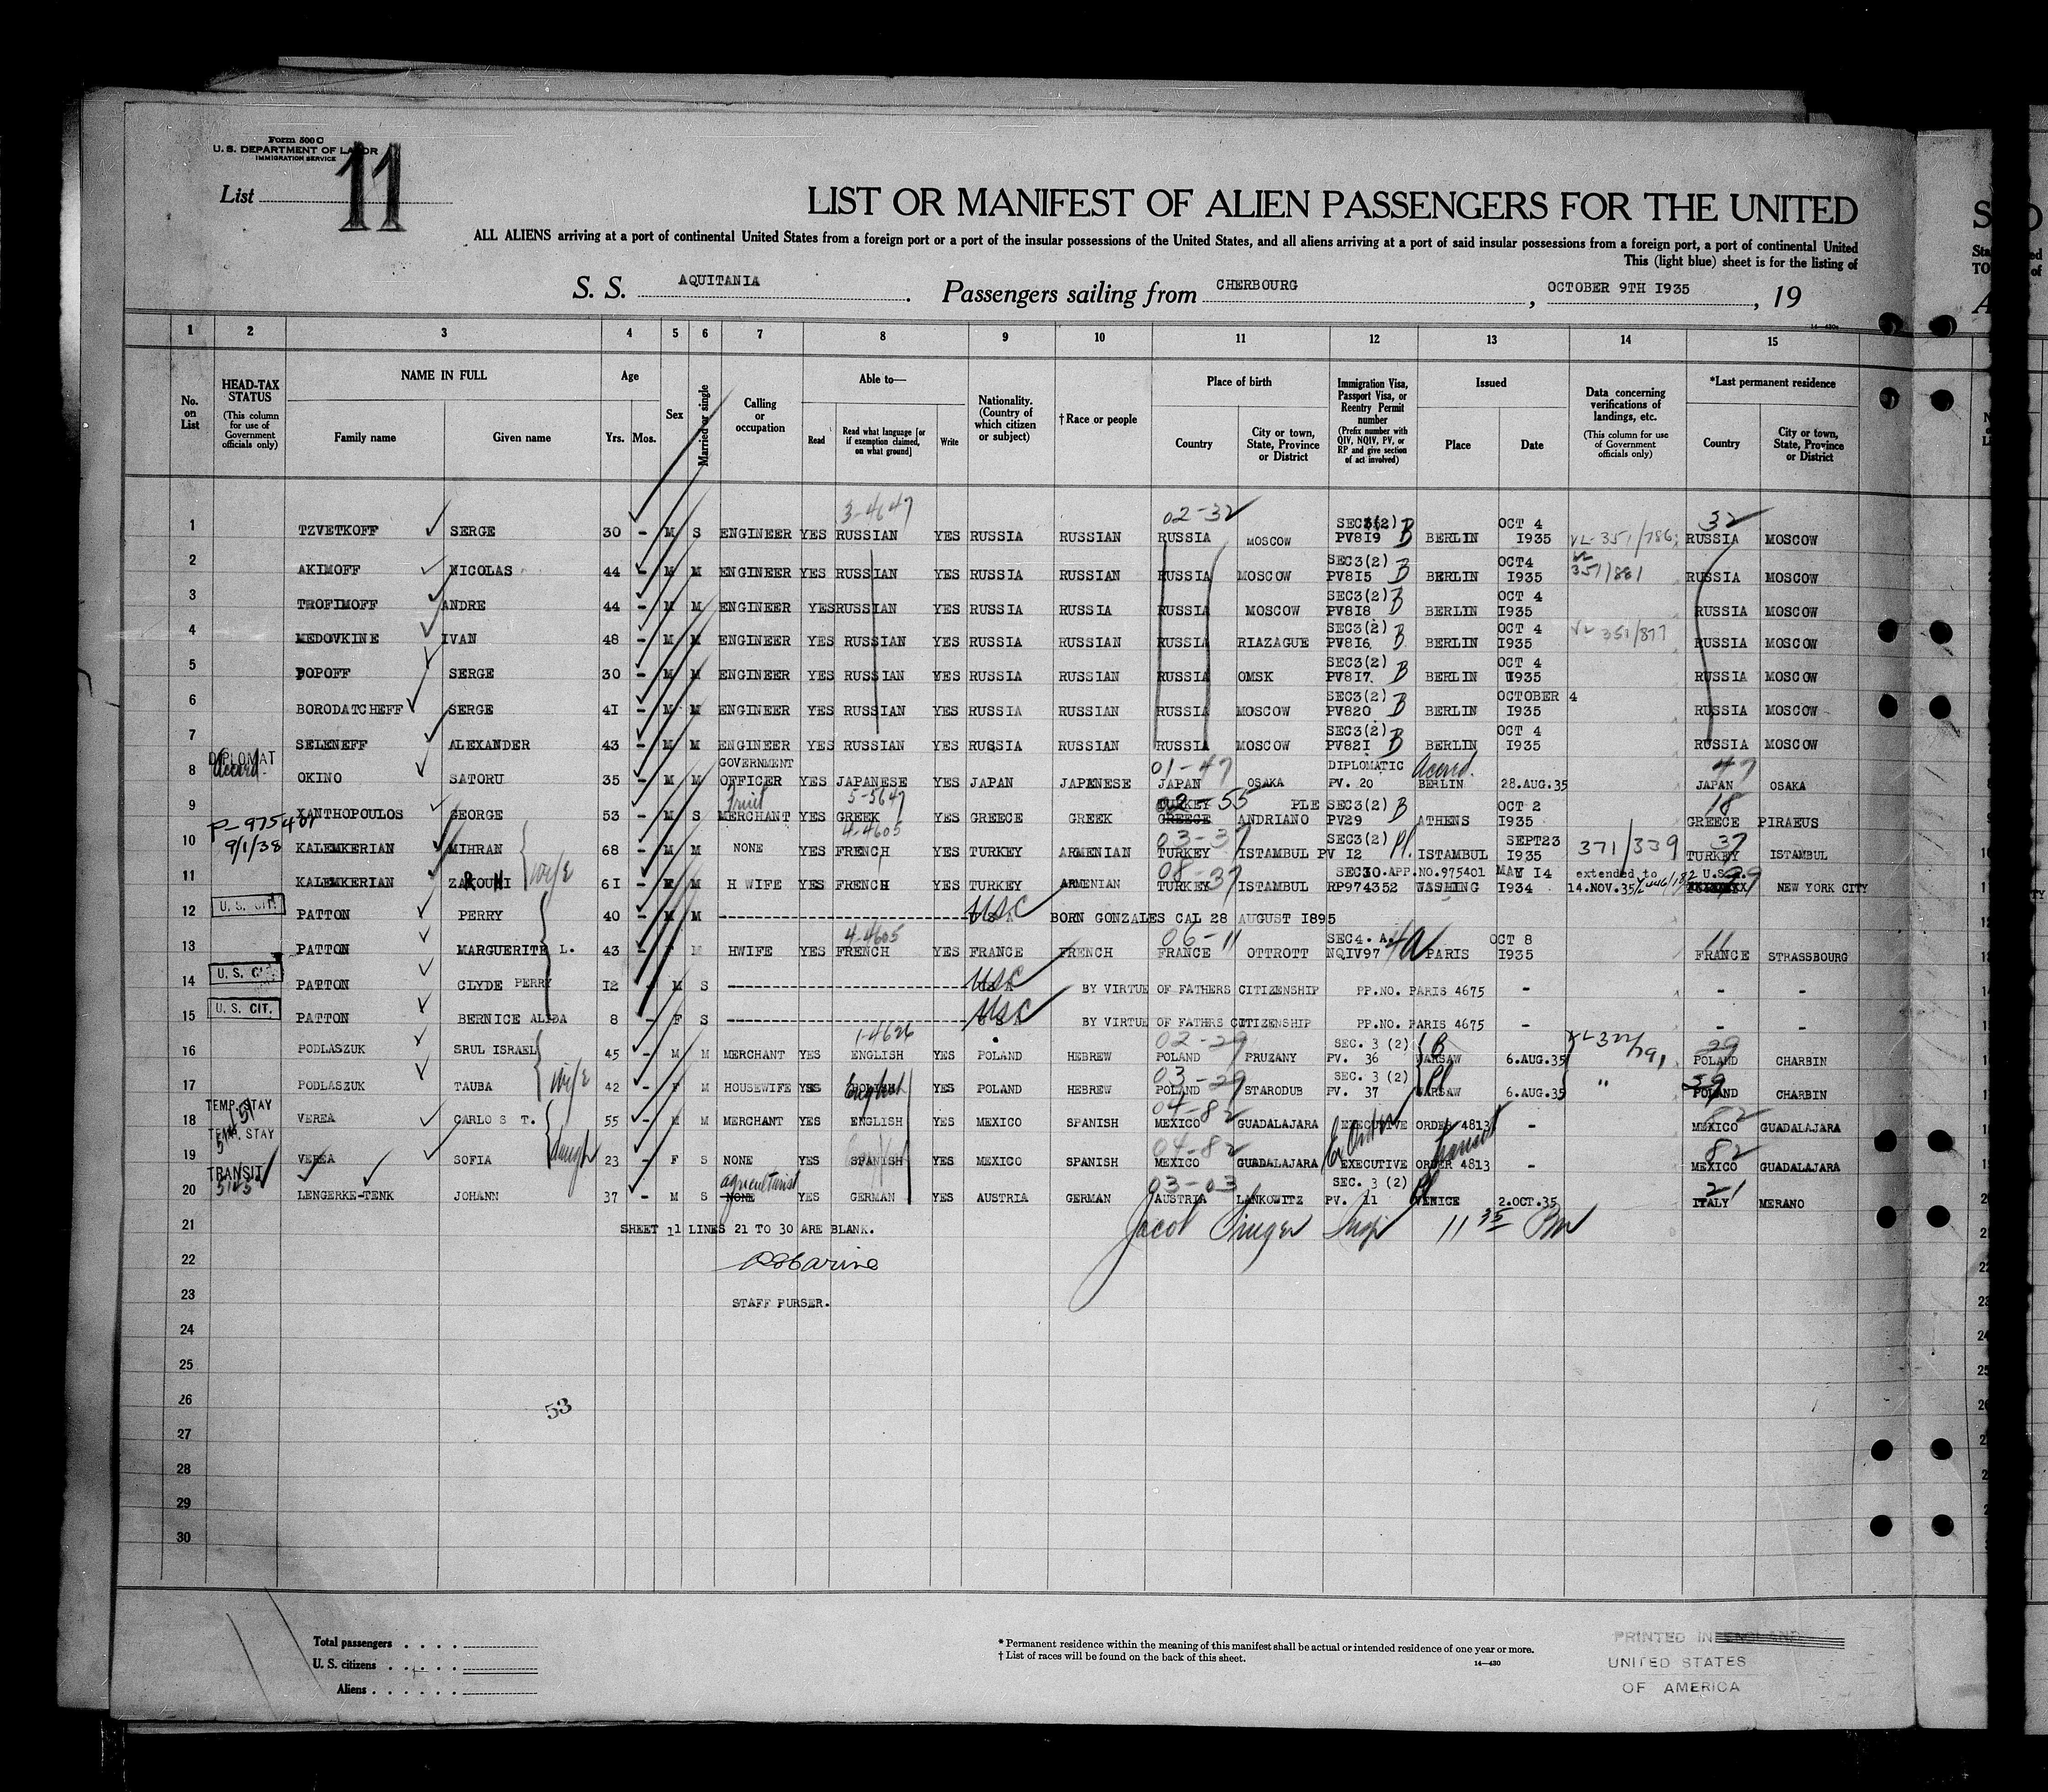 Form 500 C
U. S. DEPARTMENT OF LABOR
IMMIGRATION SERVICE
List 11
LIST OR MANIFEST OF ALIEN PASSENGERS FOR THE UNITED
ALL ALIENS arriving at a port of continental United States from a foreign port or a port of the insular possessions of the United States, and all aliens arriving at a port of said insular possessions from a foreign port, a port of continental United
This (light blue) sheet is for the listing of
S. S. AQUITANIA. Passengers sailing from CHERBOURG, OCTOBER 9TH 1935, 19
1 2 3 4 5 6 7 8 9 10 11 12 13 14 15
No. on List
HEAD-TAX STATUS (This column for use of Government officials only)
NAME IN FULL Family name Given name
Age Yrs. Mos.
Sex
Married or single
Calling or occupation
Able to— Read Read what language [or if exemption claimed, on what ground] Write
Nationality. (Country of which citizen or subject)
† Race or people
Place of birth Country City or town, State, Province or District
Immigration Visa, Passport Visa, or Reentry Permit number (Prefix number with QIV, NQIV, PV, or RP and give section of act involved)
Issued Place Date
Data concerning verifications of landings, etc. (This column for use of Government officials only)
*Last permanent residence Country City or town, State, Province or District
3-4647 02-32 32
1 TZVETKOFF SERGE 30 - M S ENGINEER YES RUSSIAN YES RUSSIA RUSSIAN RUSSIA MOSCOW SEC3(2) PV819 B BERLIN OCT 4 1935 VL-351/786 RUSSIA MOSCOW
2 AKIMOFF NICOLAS 44 - M M ENGINEER YES RUSSIAN YES RUSSIA RUSSIAN RUSSIA MOSCOW SEC3(2) PV815 B BERLIN OCT4 1935 VL 351/881 RUSSIA MOSCOW
3 TROFIMOFF ANDRE 44 - M M ENGINEER YES RUSSIAN YES RUSSIA RUSSIA RUSSIA MOSCOW SEC3(2) PV818 B BERLIN OCT 4 1935 RUSSIA MOSCOW
4 MEDOVKINE IVAN 48 - M M ENGINEER YES RUSSIAN YES RUSSIA RUSSIAN RUSSIA RIAZAGUE SEC3(2) PV816. B BERLIN OCT 4 1935 VL 351/877 RUSSIA MOSCOW
5 POPOFF SERGE 30 - M M ENGINEER YES RUSSIAN YES RUSSIA RUSSIAN RUSSIA OMSK SEC3(2) PV817. B BERLIN OCT 4 1935 RUSSIA MOSCOW
6 BORODATCHEFF SERGE 41 - M M ENGINEER YES RUSSIAN YES RUSSIA RUSSIAN RUSSIA MOSCOW SEC3(2) PV820 B BERLIN OCTOBER 4 1935 RUSSIA MOSCOW
7 SELENEFF ALEXANDER 43 - M M ENGINEER YES RUSSIAN YES RUSSIA RUSSIAN RUSSIA MOSCOW SEC3(2) PV821 B BERLIN OCT 4 1935 RUSSIA MOSCOW
DIPLOMAT Accred. 01-47 47
8 OKINO SATORU 35 - M M GOVERNMENT OFFICER YES JAPANESE YES JAPAN JAPANESE JAPAN OSAKA DIPLOMATIC PV. 20 Accred. BERLIN 28.AUG.35 JAPAN OSAKA
Fruit 5-5647 02-55 18
9 XANTHOPOULOS GEORGE 53 - M S MERCHANT YES GREEK YES GREECE GREEK TURKEY GREECE ANDRIANO PLE SEC3(2) PV29 B ATHENS OCT 2 1935 GREECE PIRAEUS
P-975401 9/1/38 4-4605 03-37 37
10 KALEMKERIAN MIHRAN 68 - M M NONE YES FRENCH YES TURKEY ARMENIAN TURKEY ISTAMBUL SEC3(2) PV 12 Pl. ISTAMBUL SEPT23 1935 371/339 TURKEY ISTAMBUL
wife 08-37 99
11 KALEMKERIAN ZAKOUHI 61 - M H WIFE YES FRENCH YES TURKEY ARMENIAN TURKEY ISTAMBUL SEC10.APP.NO.975401 RP974352 WASHING MAY 14 1934 extended to 14.NOV.35 U.S.A. NEW YORK CITY
U. S. CIT.
12 PATTON PERRY 40 - M M USC U S A BORN GONZALES CAL 28 AUGUST 1895
4-4605 06-11 11
13 PATTON MARGUERITE L. 43 - F M HWIFE YES FRENCH YES FRANCE FRENCH FRANCE OTTROTT SEC4. A. NQIV97 4A PARIS OCT 8 1935 FRANCE STRASSBOURG
U. S. CIT.
14 PATTON CLYDE PERRY 12 - M S USC U S A BY VIRTUE OF FATHERS CITIZENSHIP PP.NO. PARIS 4675 - - -
U. S. CIT.
15 PATTON BERNICE ALIDA 8 - F S USC U S A BY VIRTUE OF FATHRS CITIZENSHIP PP.NO. PARIS 4675 - - -
1-4626 02-29 29
16 PODLASZUK SRUL ISRAEL 45 - M M MERCHANT YES ENGLISH YES POLAND HEBREW POLAND PRUZANY SEC. 3 (2) PV. 36 B WARSAW 6.AUG.35 VL 322/791 POLAND CHARBIN
wife 03-29 59
17 PODLASZUK TAUBA 42 - F M HOUSEWIFE YES English YES POLAND HEBREW POLAND STARODUB SEC. 3 (2) PV. 37 Pl WARSAW 6.AUG.35 " POLAND CHARBIN
TEMP. STAY 04-82 82
18 VEREA CARLOS T. 55 - M M MERCHANT YES ENGLISH YES MEXICO SPANISH MEXICO GUADALAJARA EXECUTIVE ORDER 4813 - MEXICO GUADALAJARA
TEMP. STAY daugh 04-82 Ex Order Transit 82
19 VEREA SOFIA 23 - F S NONE YES SPANISH YES MEXICO SPANISH MEXICO GUADALAJARA EXECUTIVE ORDER 4813 - MEXICO GUADALAJARA
TRANSIT agriculturist 03-03 21
20 LENGERKE-TENK JOHANN 37 - M S NONE YES GERMAN YES AUSTRIA GERMAN AUSTRIA LANKOWITZ SEC. 3 (2) PV. 11 Pl VENICE 2.OCT.35 ITALY MERANO
21 SHEET 11 LINES 21 TO 30 ARE BLANK. Jacob Singer Insp 11 35 PM
22
23 STAFF PURSER.
24
25
26
53
27
28
29
30
Total passengers
U. S. citizens
Aliens
* Permanent residence within the meaning of this manifest shall be actual or intended residence of one year or more.
† List of races will be found on the back of this sheet.
14—430
PRINTED IN ENGLAND
UNITED STATES
OF AMERICA